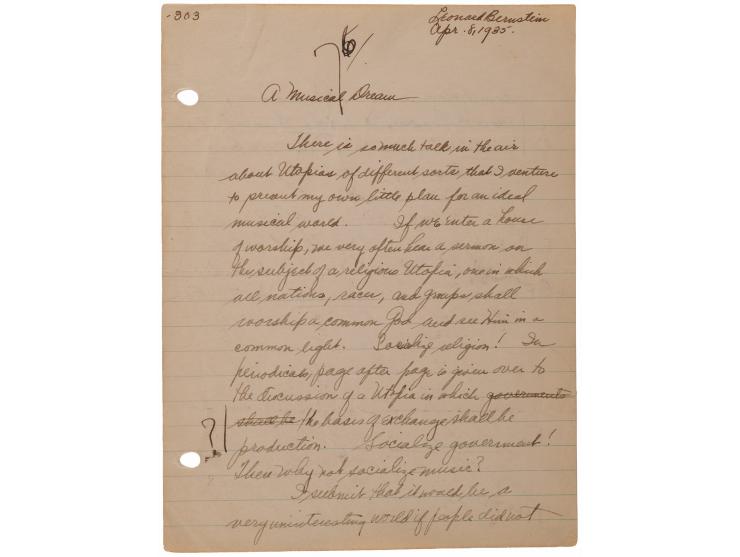 -303
Leonard Bernstein
Apr. 8, 1935.
A Musical Dream
There is so much talk in the air
about Utopias of different sorts, that I venture
to present my own little plan for an ideal
musical world. If we enter a house
of worship, we very often hear a sermon on
the subject of a religious Utopia, one in which
all nations, races, and groups, shall
worship a common God and see Him in a
common light. Socialize religion! In
periodicals, page after page is given over to
the discussion of a Utopia in which governments
shall be the basis of exchange shall be
production. Socialize government!
Then why not socialize music?
I submit that it would be a
very uninteresting world if people did not